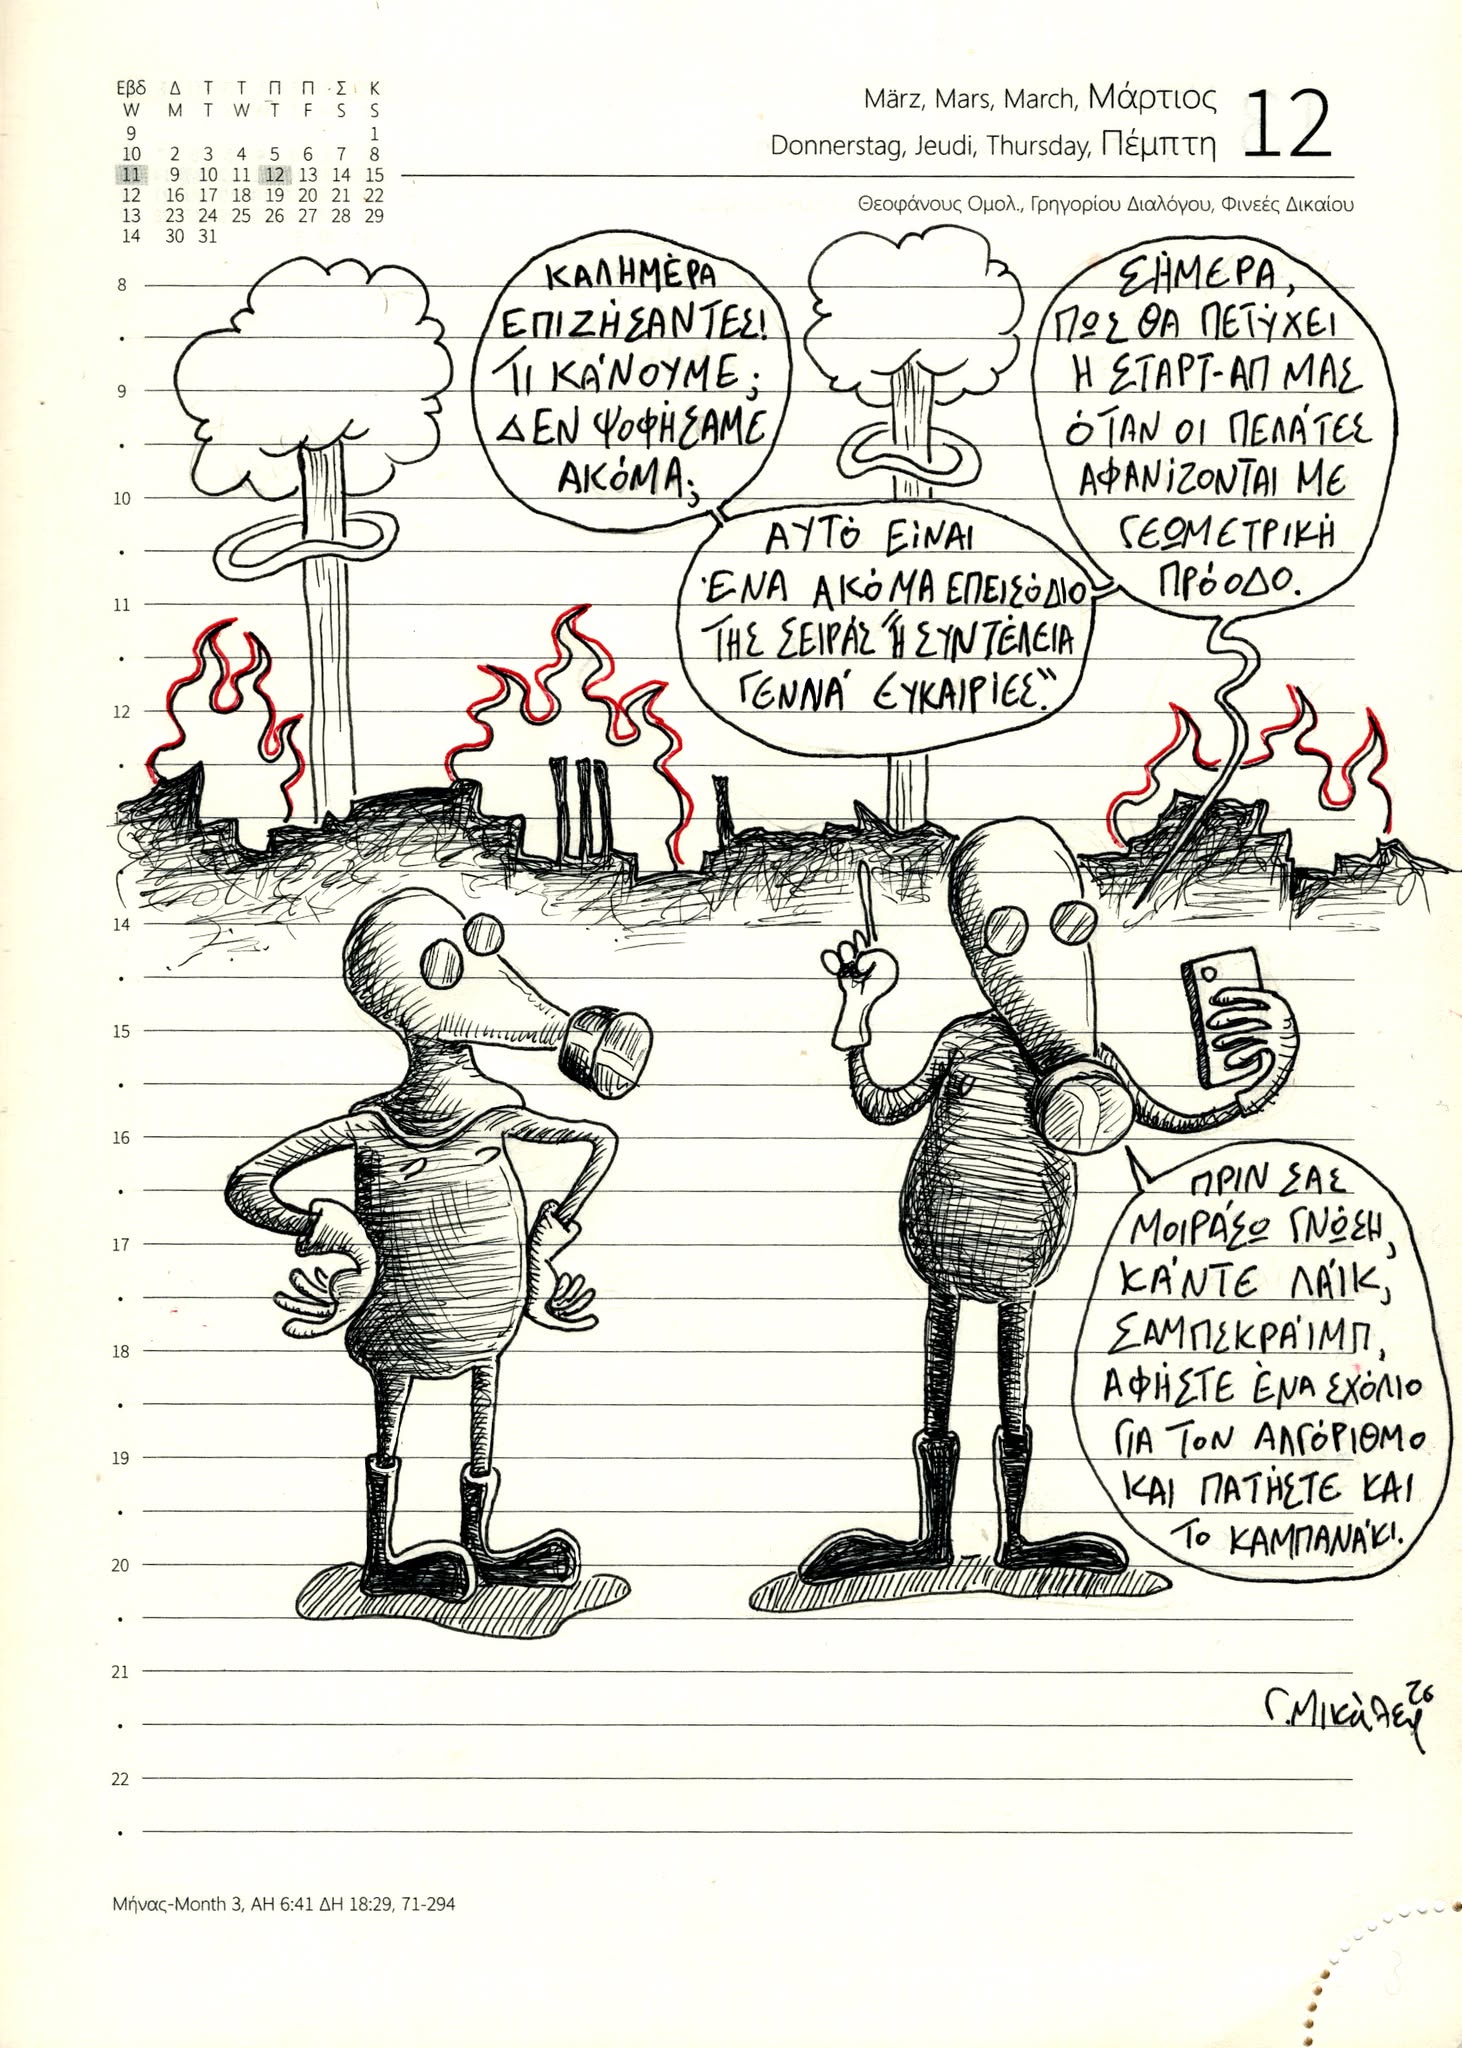 Εβδ Δ Τ Τ Π Π Σ Κ
W M T W T F S S
9 1
10 2 3 4 5 6 7 8
11 9 10 11 12 13 14 15
12 16 17 18 19 20 21 22
13 23 24 25 26 27 28 29
14 30 31
März, Mars, March, Μάρτιος
Donnerstag, Jeudi, Thursday, Πέμπτη
12
Θεοφάνους Ομολ., Γρηγορίου Διαλόγου, Φινεές Δικαίου
ΚΑΛΗΜΈΡΑ
ΕΠΙΖΉΣΑΝΤΕΣ!
ΤΙ ΚΆΝΟΥΜΕ;
ΔΕΝ ΨΟΦΉΣΑΜΕ
ΑΚΌΜΑ;
ΑΥΤΌ ΕΊΝΑΙ
ΈΝΑ ΑΚΌΜΑ ΕΠΕΙΣΌΔΙΟ
ΤΗΣ ΣΕΙΡΆΣ "Η ΣΥΝΤΈΛΕΙΑ
ΓΕΝΝΆ ΕΥΚΑΙΡΊΕΣ".
ΣΉΜΕΡΑ,
ΠΩΣ ΘΑ ΠΕΤΎΧΕΙ
Η ΣΤΑΡΤ-ΑΠ ΜΑΣ
ΌΤΑΝ ΟΙ ΠΕΛΆΤΕΣ
ΑΦΑΝΊΖΟΝΤΑΙ ΜΕ
ΓΕΩΜΕΤΡΙΚΉ
ΠΡΌΟΔΟ.
ΠΡΙΝ ΣΑΣ
ΜΟΙΡΆΣΩ ΓΝΏΣΗ,
ΚΆΝΤΕ ΛΆΙΚ,
ΣΑΜΠΣΚΡΆΙΜΠ,
ΑΦΉΣΤΕ ΈΝΑ ΣΧΌΛΙΟ
ΓΙΑ ΤΟΝ ΑΛΓΌΡΙΘΜΟ
ΚΑΙ ΠΑΤΉΣΤΕ ΚΑΙ
ΤΟ ΚΑΜΠΑΝΆΚΙ.
8
9
10
11
12
14
15
16
17
18
19
20
21
22
Γ. Μικάλεφ 26
Μήνας-Month 3, ΑΗ 6:41 ΔΗ 18:29, 71-294